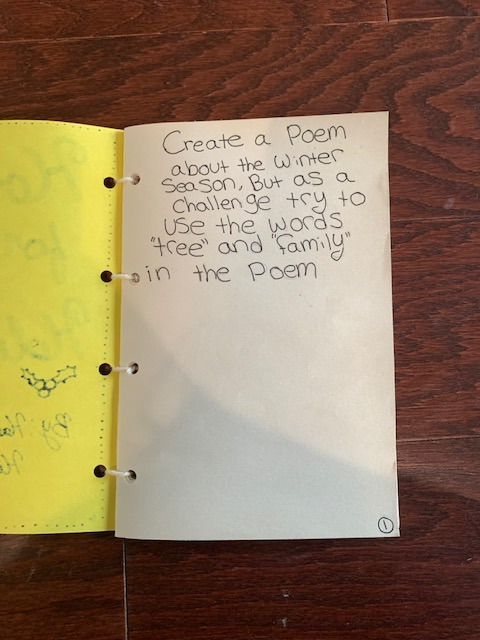 Create a Poem
about the Winter
Season, But as a
Challenge try to
Use the words
"tree" and "family"
in the Poem
1